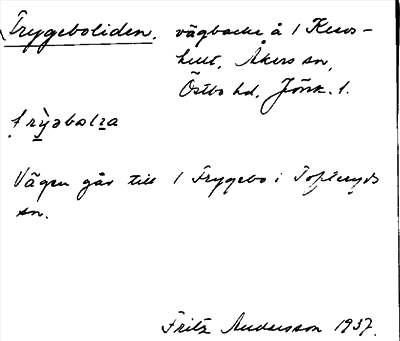 Frygeboliden, vägbacke å 1 Kers-
hult, Åkers sn,
Östbo hd, Jönk. l.
frỳgbolıa
Vägen går till 1 Frygebo i Tofteryds
sn.
Fritz Andersson 1937.